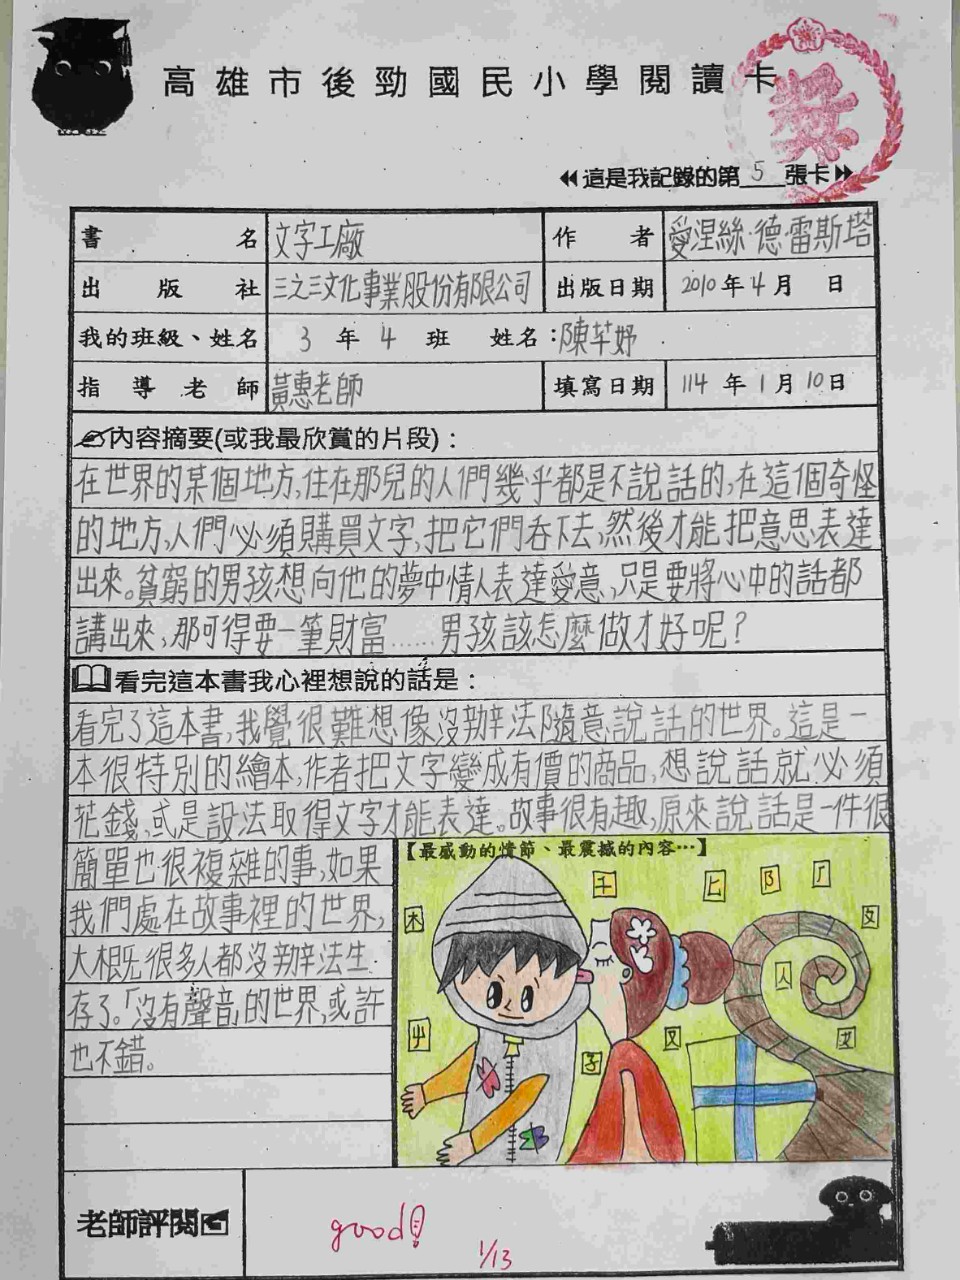 高雄市後勁國民小學閱讀卡
獎
這是我記錄的第5張卡
書名 文字工廠 作者 愛涅絲·德·雷斯塔
出版社 三之三文化事業股份有限公司 出版日期 2010年4月 日
我的班級、姓名 3年4班 姓名:陳芊妤
指導老師 黃惠老師 填寫日期 114年1月10日
內容摘要(或我最欣賞的片段):
在世界的某個地方,住在那兒的人們幾乎都是不說話的,在這個奇怪
的地方,人們必須購買文字,把它們吞下去,然後才能把意思表達
出來。貧窮的男孩想向他的夢中情人表達愛意,只是要將心中的話都
講出來,那可得要一筆財富……男孩該怎麼做才好呢?
看完這本書我心裡想說的話是:
看完了這本書,我覺很難想像沒辦法隨意說話的世界。這是一
本很特別的繪本,作者把文字變成有價的商品,想說話就必須
花錢,或是設法取得文字才能表達。故事很有趣,原來說話是一件很
簡單也很複雜的事,如果
我們處在故事裡的世界,
大概很多人都沒辦法生
存了。「沒有聲音」的世界,或許
也不錯。
【最感動的情節、最震撼的內容…】
千
上
阝
厂
木
文
人
屮
子
又
女
老師評閱
good!
1/13